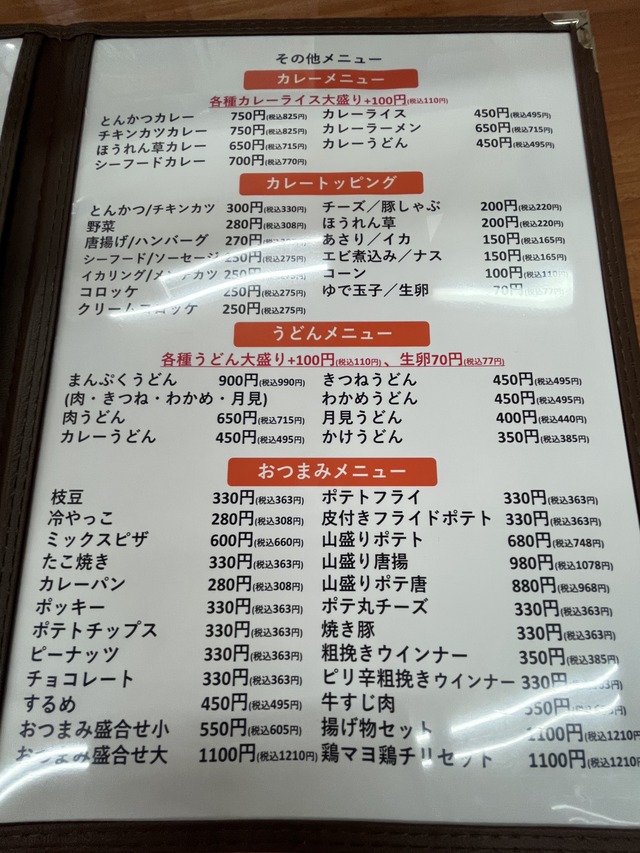 その他メニュー
カレーメニュー
各種カレーライス大盛り+100円(税込110円)
とんかつカレー 750円(税込825円)
チキンカツカレー 750円(税込825円)
ほうれん草カレー 650円(税込715円)
シーフードカレー 700円(税込770円)
カレーライス 450円(税込495円)
カレーラーメン 650円(税込715円)
カレーうどん 450円(税込495円)
カレートッピング
とんかつ/チキンカツ 300円(税込330円)
野菜 280円(税込308円)
唐揚げ/ハンバーグ 270円
シーフード/ソーセージ 250円(税込275円)
イカリング/メンチカツ 250円
コロッケ 250円(税込275円)
クリームコロッケ 250円(税込275円)
チーズ／豚しゃぶ 200円(税込220円)
ほうれん草 200円(税込220円)
あさり／イカ 150円(税込165円)
エビ煮込み／ナス 150円(税込165円)
コーン 100円(税込110円)
ゆで玉子／生卵 70円(税込77円)
うどんメニュー
各種うどん大盛り+100円(税込110円)、生卵70円(税込77円)
まんぷくうどん 900円(税込990円)
(肉・きつね・わかめ・月見)
肉うどん 650円(税込715円)
カレーうどん 450円(税込495円)
きつねうどん 450円(税込495円)
わかめうどん 450円(税込495円)
月見うどん 400円(税込440円)
かけうどん 350円(税込385円)
おつまみメニュー
枝豆 330円(税込363円)
冷やっこ 280円(税込308円)
ミックスピザ 600円(税込660円)
たこ焼き 330円(税込363円)
カレーパン 280円(税込308円)
ポッキー 330円(税込363円)
ポテトチップス 330円(税込363円)
ピーナッツ 330円(税込363円)
チョコレート 330円(税込363円)
するめ 450円(税込495円)
おつまみ盛合せ小 550円(税込605円)
おつまみ盛合せ大 1100円(税込1210円)
ポテトフライ 330円(税込363円)
皮付きフライドポテト 330円(税込363円)
山盛りポテト 680円(税込748円)
山盛り唐揚 980円(税込1078円)
山盛りポテ唐 880円(税込968円)
ポテ丸チーズ 330円(税込363円)
焼き豚 330円(税込363円)
粗挽きウインナー 350円(税込385円)
ピリ辛粗挽きウィンナー 330円
牛すじ肉
揚げ物セット 1100円(税込1210円
鶏マヨ鶏チリセット 1100円(税込1210円